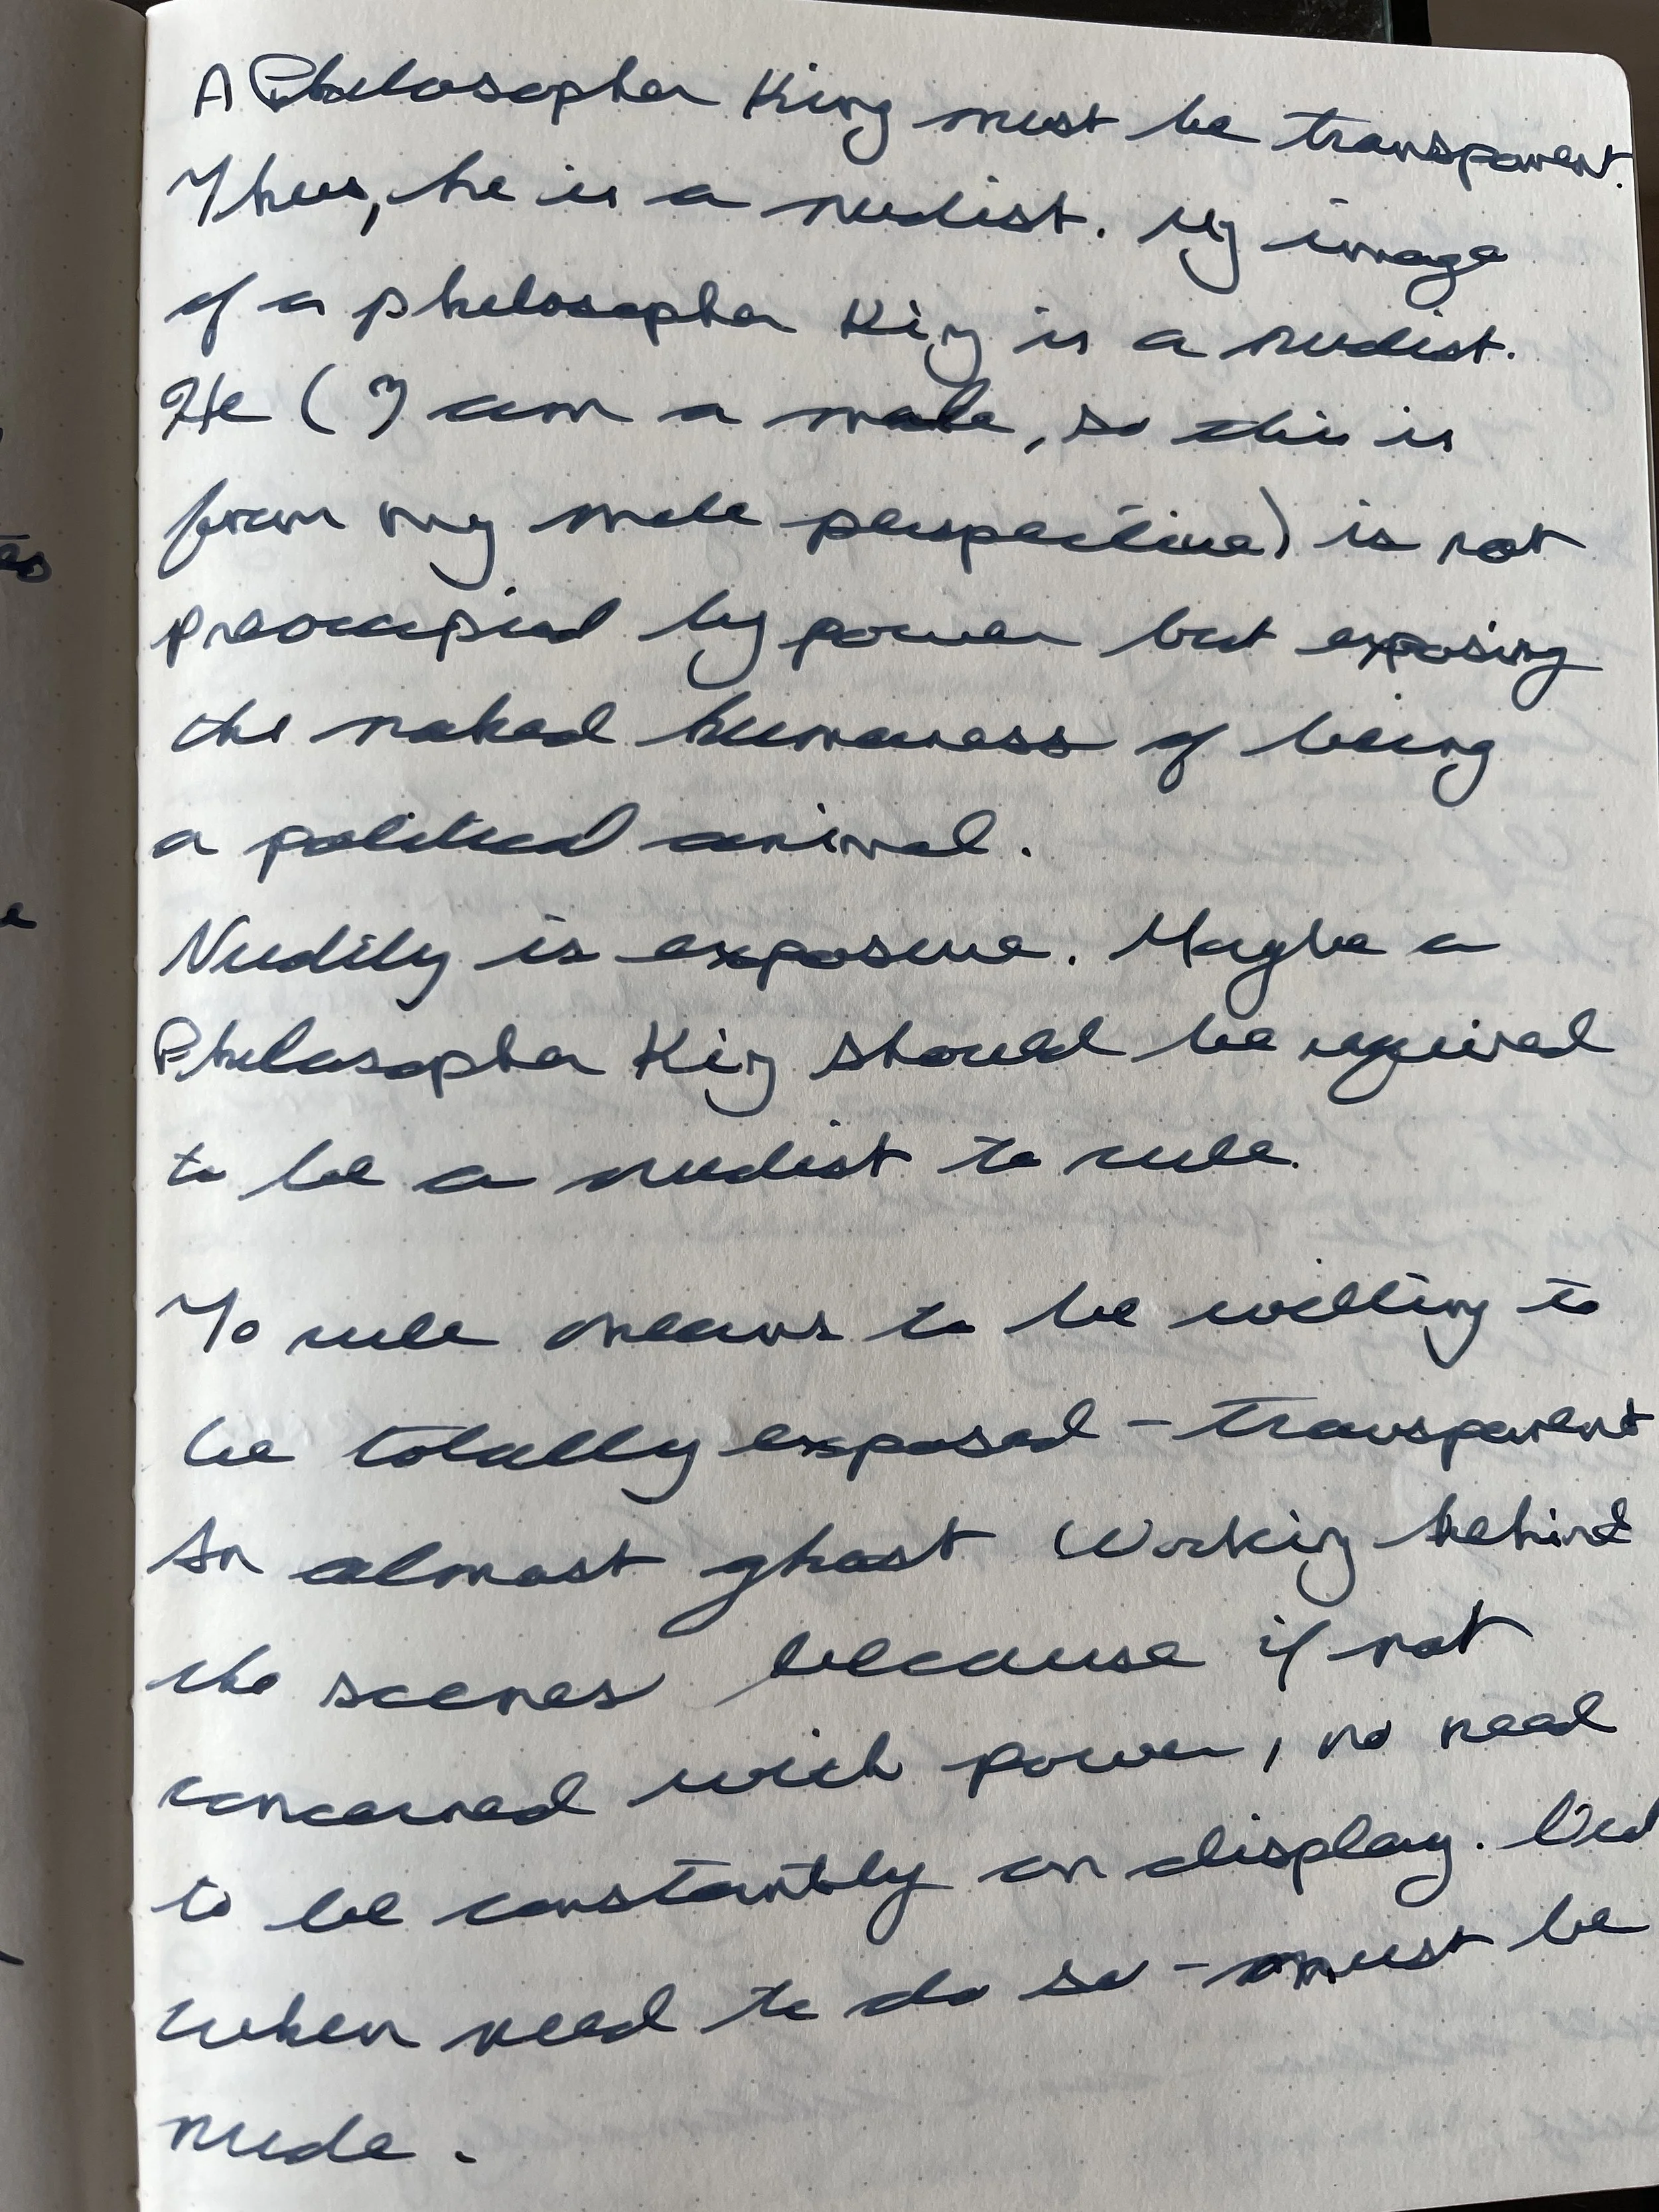 A Philosopher King must be transparent.
Thus, he is a nudist. My image
of a philosopher King is a nudist.
He (I am a male, so this is
from my male perspective) is not
preoccupied by power but exposing
the naked humaness of being
a political animal.
Nudity is exposure. Maybe a
Philosopher King should be required
to be a nudist to rule.
To rule means to be willing to
be totally exposed - transparent
An almost ghost working behind
the scenes because if not
concerned with power, no need
to be constantly on display.
when need to do so - must be
nude.